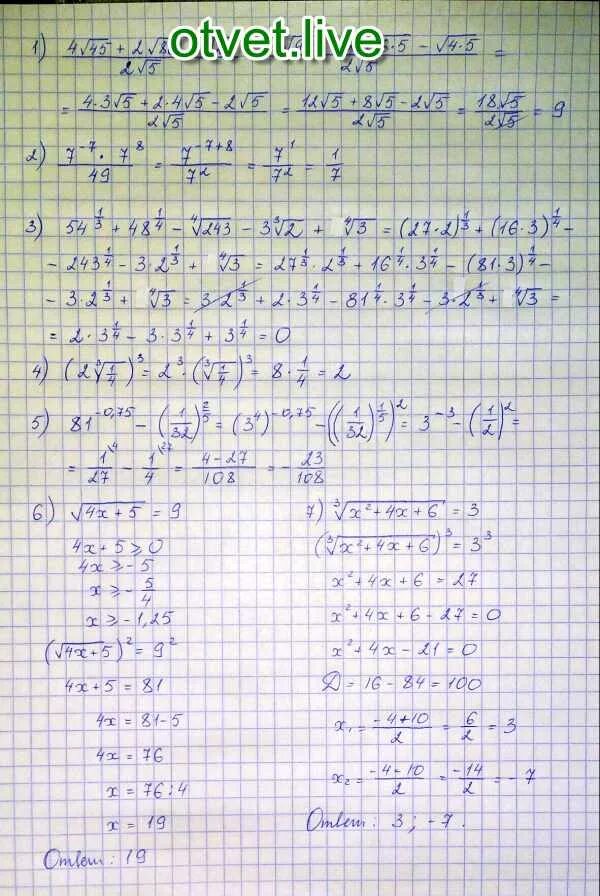 otvet.live
1) (4√45 + 2√8 ... √5·5 − √4·5)/(2√5) =
= (4·3√5 + 2·4√5 − 2√5)/(2√5) = (12√5 + 8√5 − 2√5)/(2√5) = 18√5/(2√5) = 9
2) (7^-7 · 7^8)/49 = 7^(-7+8)/7^2 = 7^1/7^2 = 1/7
3) 54^(1/3) + 48^(1/4) − ⁴√243 − 3∛2 + ⁴√3 = (27·2)^(1/3) + (16·3)^(1/4) −
− 243^(1/4) − 3·2^(1/3) + ⁴√3 = 27^(1/3)·2^(1/3) + 16^(1/4)·3^(1/4) − (81·3)^(1/4) −
− 3·2^(1/3) + ⁴√3 = 3·2^(1/3) + 2·3^(1/4) − 81^(1/4)·3^(1/4) − 3·2^(1/3) + ⁴√3 =
= 2·3^(1/4) − 3·3^(1/4) + 3^(1/4) = 0
4) (2∛(1/4))^3 = 2^3·(∛(1/4))^3 = 8·1/4 = 2
5) 81^(-0,75) − (1/32)^(2/5) = (3^4)^(-0,75) − ((1/32)^(1/5))^2 = 3^-3 − (1/2)^2 =
= 1/27 \4 − 1/4 \27 = (4−27)/108 = −23/108
6) √(4x+5) = 9
4x+5 ⩾ 0
4x ⩾ −5
x ⩾ −5/4
x ⩾ −1,25
(√(4x+5))^2 = 9^2
4x+5 = 81
4x = 81−5
4x = 76
x = 76:4
x = 19
Ответ: 19
7) ∛(x²+4x+6) = 3
(∛(x²+4x+6))^3 = 3^3
x²+4x+6 = 27
x²+4x+6−27 = 0
x²+4x−21 = 0
D = 16−84 = 100
x₁ = (−4+10)/2 = 6/2 = 3
x₂ = (−4−10)/2 = −14/2 = −7
Ответ: 3; −7.